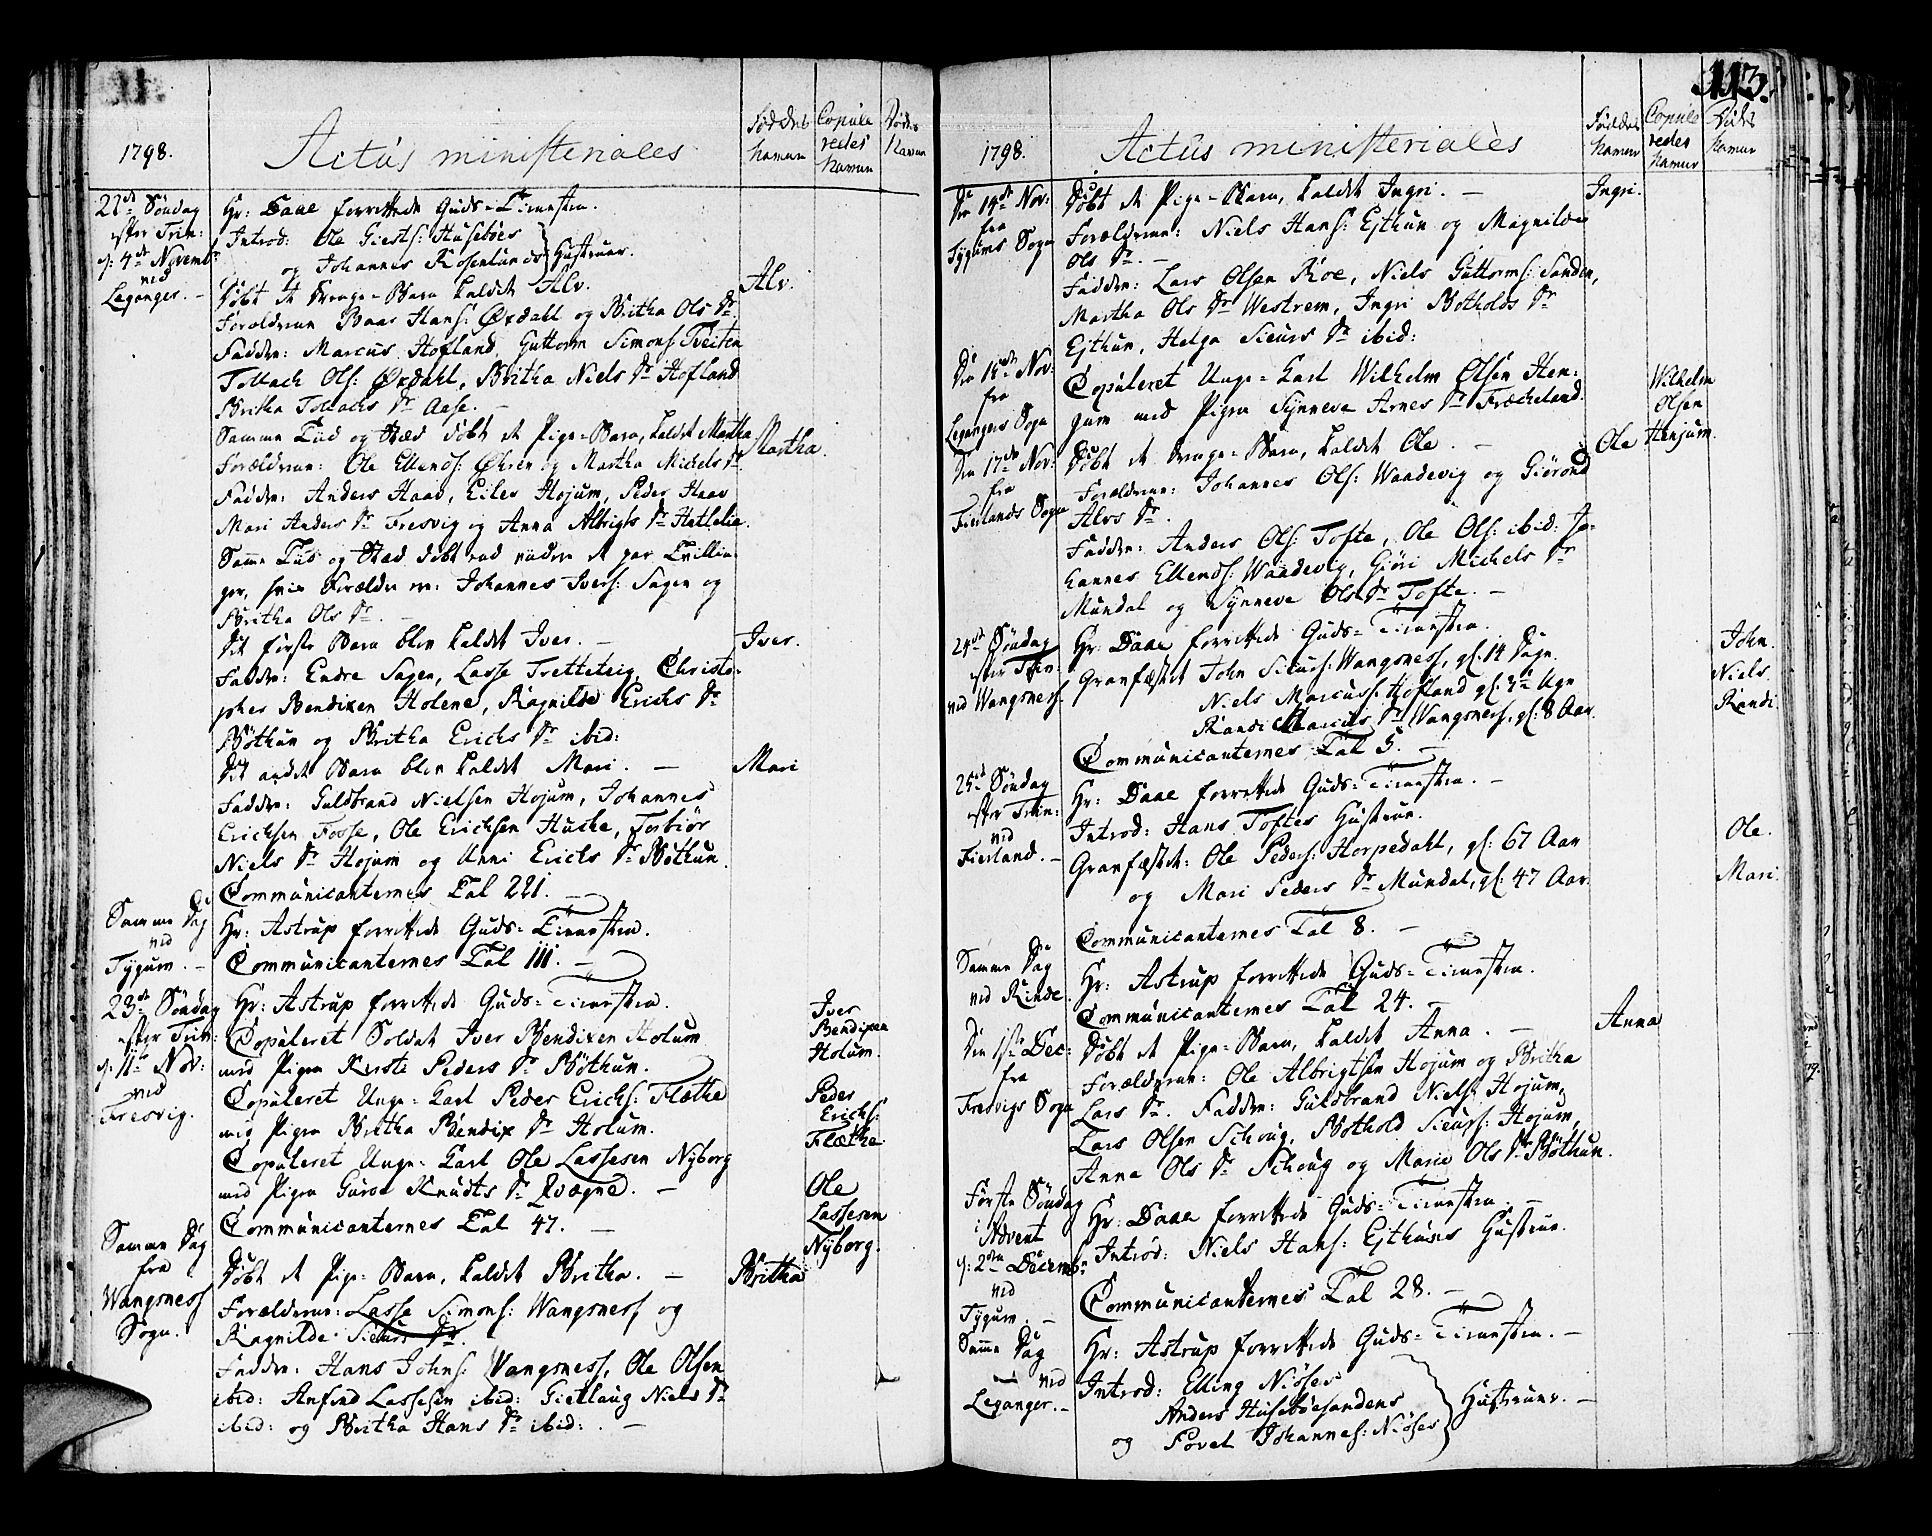 1798.
Actûs ministeriales
Føddes Navnn
Copule redes Navnn
Dødes Navnn
22de Søndag
efter Trin:
ɔ: 4de Novemb:
ved
Leganger. –
Hr: Daae forrettede Guds-Tienesten.
Introd: Ole Giests: Husebøes
og Johannes Rosenlunds Hustruer.
Døbt et Drenge-Barn kaldet Alv.
Alv.
Forældrene Baar Hans: Øxdahl og Britha Ols Dr
Faddere: Marcus Hofland, Guttorm Simons: Tveiten
Tollach Ols: Øxdahl, Britha Niels Dr Hofland
Britha Tollachs Dr Aase. –
Samme Tiid og Stæd døbt et Pige-Barn, kaldet Martha
Martha.
Forældrene: Ole Ellends: Øhren og Martha Michels Dr
Faddere: Anders Haav, Eiler Hojum, Peder Haav
Mari Anders Dr Fresvig og Anna Albrigts Dr Hatlelie.
Samme Tiid og Stæd døbt et par Tvillin-
ger, hvis Forældre er: Johannes Ivers: Sagen og
Britha Ols Dr. –
Det første Barn blev kaldet Iver. –
Iver.
Faddere: Endre Sagen, Lasse Tretteteig, Christo-
pher Bendixen Holene, Ragnilde Erichs Dr
Bøthun og Britha Erichs Dr ibid:
Det andet Barn blev kaldet Mari. –
Mari
Faddere: Guldbrand Nielsen Hojum, Johannes
Erichsen Fosse, Ole Erichsen Huske, Torbiør
Niels Dr Hojum og Unni Erichs Dr Bøthun.
Communicanternes Tal 221. –
Samme Dag
ved
Tygum. –
Hr: Astrup forrettede Guds-Tienesten.
Communicanternes Tal 111. –
23de Søndag
efter Trin:
ɔ: 11te Nov:
ved
Fresvig.
Hr: Astrup forrettede Guds-Tienesten.
Copuleret Soldat Iver Bendixen Holum
med Pigen Kirste Peders Dr Bøthun.
Iver
Bendixen
Holum.
Copuleret Unge-Karl Peder Erichs: Flæthe
med Pigen Britha Bendix Dr Holum.
Peder
Erichs:
Flæthe.
Copuleret Unge-Karl Ole Lassesen Nyborg
med Pigen Guroe Knudts Dr Qvægne. –
Ole
Lassesen
Nyborg.
Communicanternes Tal 47. –
Samme Dag
fra
Wangsness
Sogn.
Døbt et Pige-Barn, kaldet Britha. –
Britha
Forældrene: Lasse Simons: Wangsness og
Ragnilde Sieurs Dr.
Faddere: Hans Johns: Wangsness, Ole Olsen
ibid: Anfind Lassesen ibid: Giertlaug Niels Dr
ibid: og Britha Hans Dr ibid: –
113.
1798.
Actûs ministeriales
Føddes Navnn
Copule redes Navnn
Dødes Navnn
Den 14de Nov:
fra
Tygums Sogn
Døbt et Pige-Barn, kaldet Ingri. –
Ingri.
Forældrene: Niels Hans: Ejthun og Magnilde
Ols Dr. –
Faddere: Lars Olsen Roe, Niels Guttorms: Sanden,
Martha Ols Dr Westrem, Ingri Botholds Dr
Ejthun, Helga Sieurs Dr ibid:
Nov:
fra
Legangers Sogn
Copuleret Unge-Karl Wilhelm Olsen Hen-
jum med Pigen Synneva Arnes Dr Frækeland.
Wilhelm
Olsen
Henjum.
Den 17de Nov:
fra
Fierlands Sogn
Døbt et Drenge-Barn, kaldet Ole. –
Ole
Forældrene: Johannes Ols: Waadevig og Giørond
Alvs Dr.
Faddere: Anders Ols: Tofte, Ole Ols: ibid: Jo-
hannes Ellends: Waadevig, Giøri Michels Dr
Mundal og Synneva Ols Dr Tofte. –
24de Søndag
efter Trin:
ved Wangsness.
Hr: Daae forrettede Guds-Tienesten.
Granfæstet John Sieurs: Wangsness, gl: 14 Dage.
John.
Niels Marcuss: Hofland gl: Uger
Niels
Randi Marcus Dr Wangsness, gl: 8 Aar.
Randi.
Communicanternes Tal 5. –
25de Søndag
efter Trin:
ved
Fierland. –
Hr: Daae forrettede Guds-Tienesten. –
Introd: Hans Toftes Hustrue.
Granfæstet: Ole Peders: Horpedahl, gl: 67 Aar
Ole.
og Mari Peders Dr Mundal, gl: 47 Aar.
Mari.
Communicanternes Tal 8. –
Samme Dag
ved Rinde.
Hr: Astrup forrettede Guds-Tienesten.
Communicanternes Tal 24. –
Den 1ste Dec:
fra
Fresvigs Sogn
Døbt et Pige-Barn, kaldet Anna. –
Anna
Forældrene: Ole Albrigtsen Hojum og Britha
Lars Dr. Faddere: Guldbrand Niels: Hojum,
Lars Olsen Schoug, Bothold Sieurs: Hojum,
Anna Ols Dr Schoug og Marie Ols Dr Bøthun.
Første Søndag
i Advent
ɔ: 2den Decemb:
ved
Tygum. –
Hr: Daae forrettede Guds-Tienesten. –
Introd: Niels Hans: Ejthuns Hustrue.
Communicanternes Tal 28. –
Samme Dag
ved
Leganger. –
Hr: Astrup forrettede Guds-Tienesten. –
Introd: Elling Niøses
Anders Husebøesandens
og Povel Johanness: Niøses
Hustruer. –